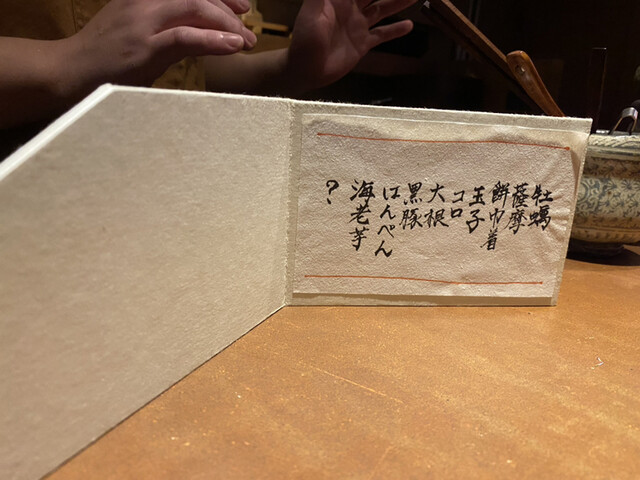 牡蠣
薩摩
餅巾着
玉子
コロ
大根
黒豚
はんぺん
海老芋
?